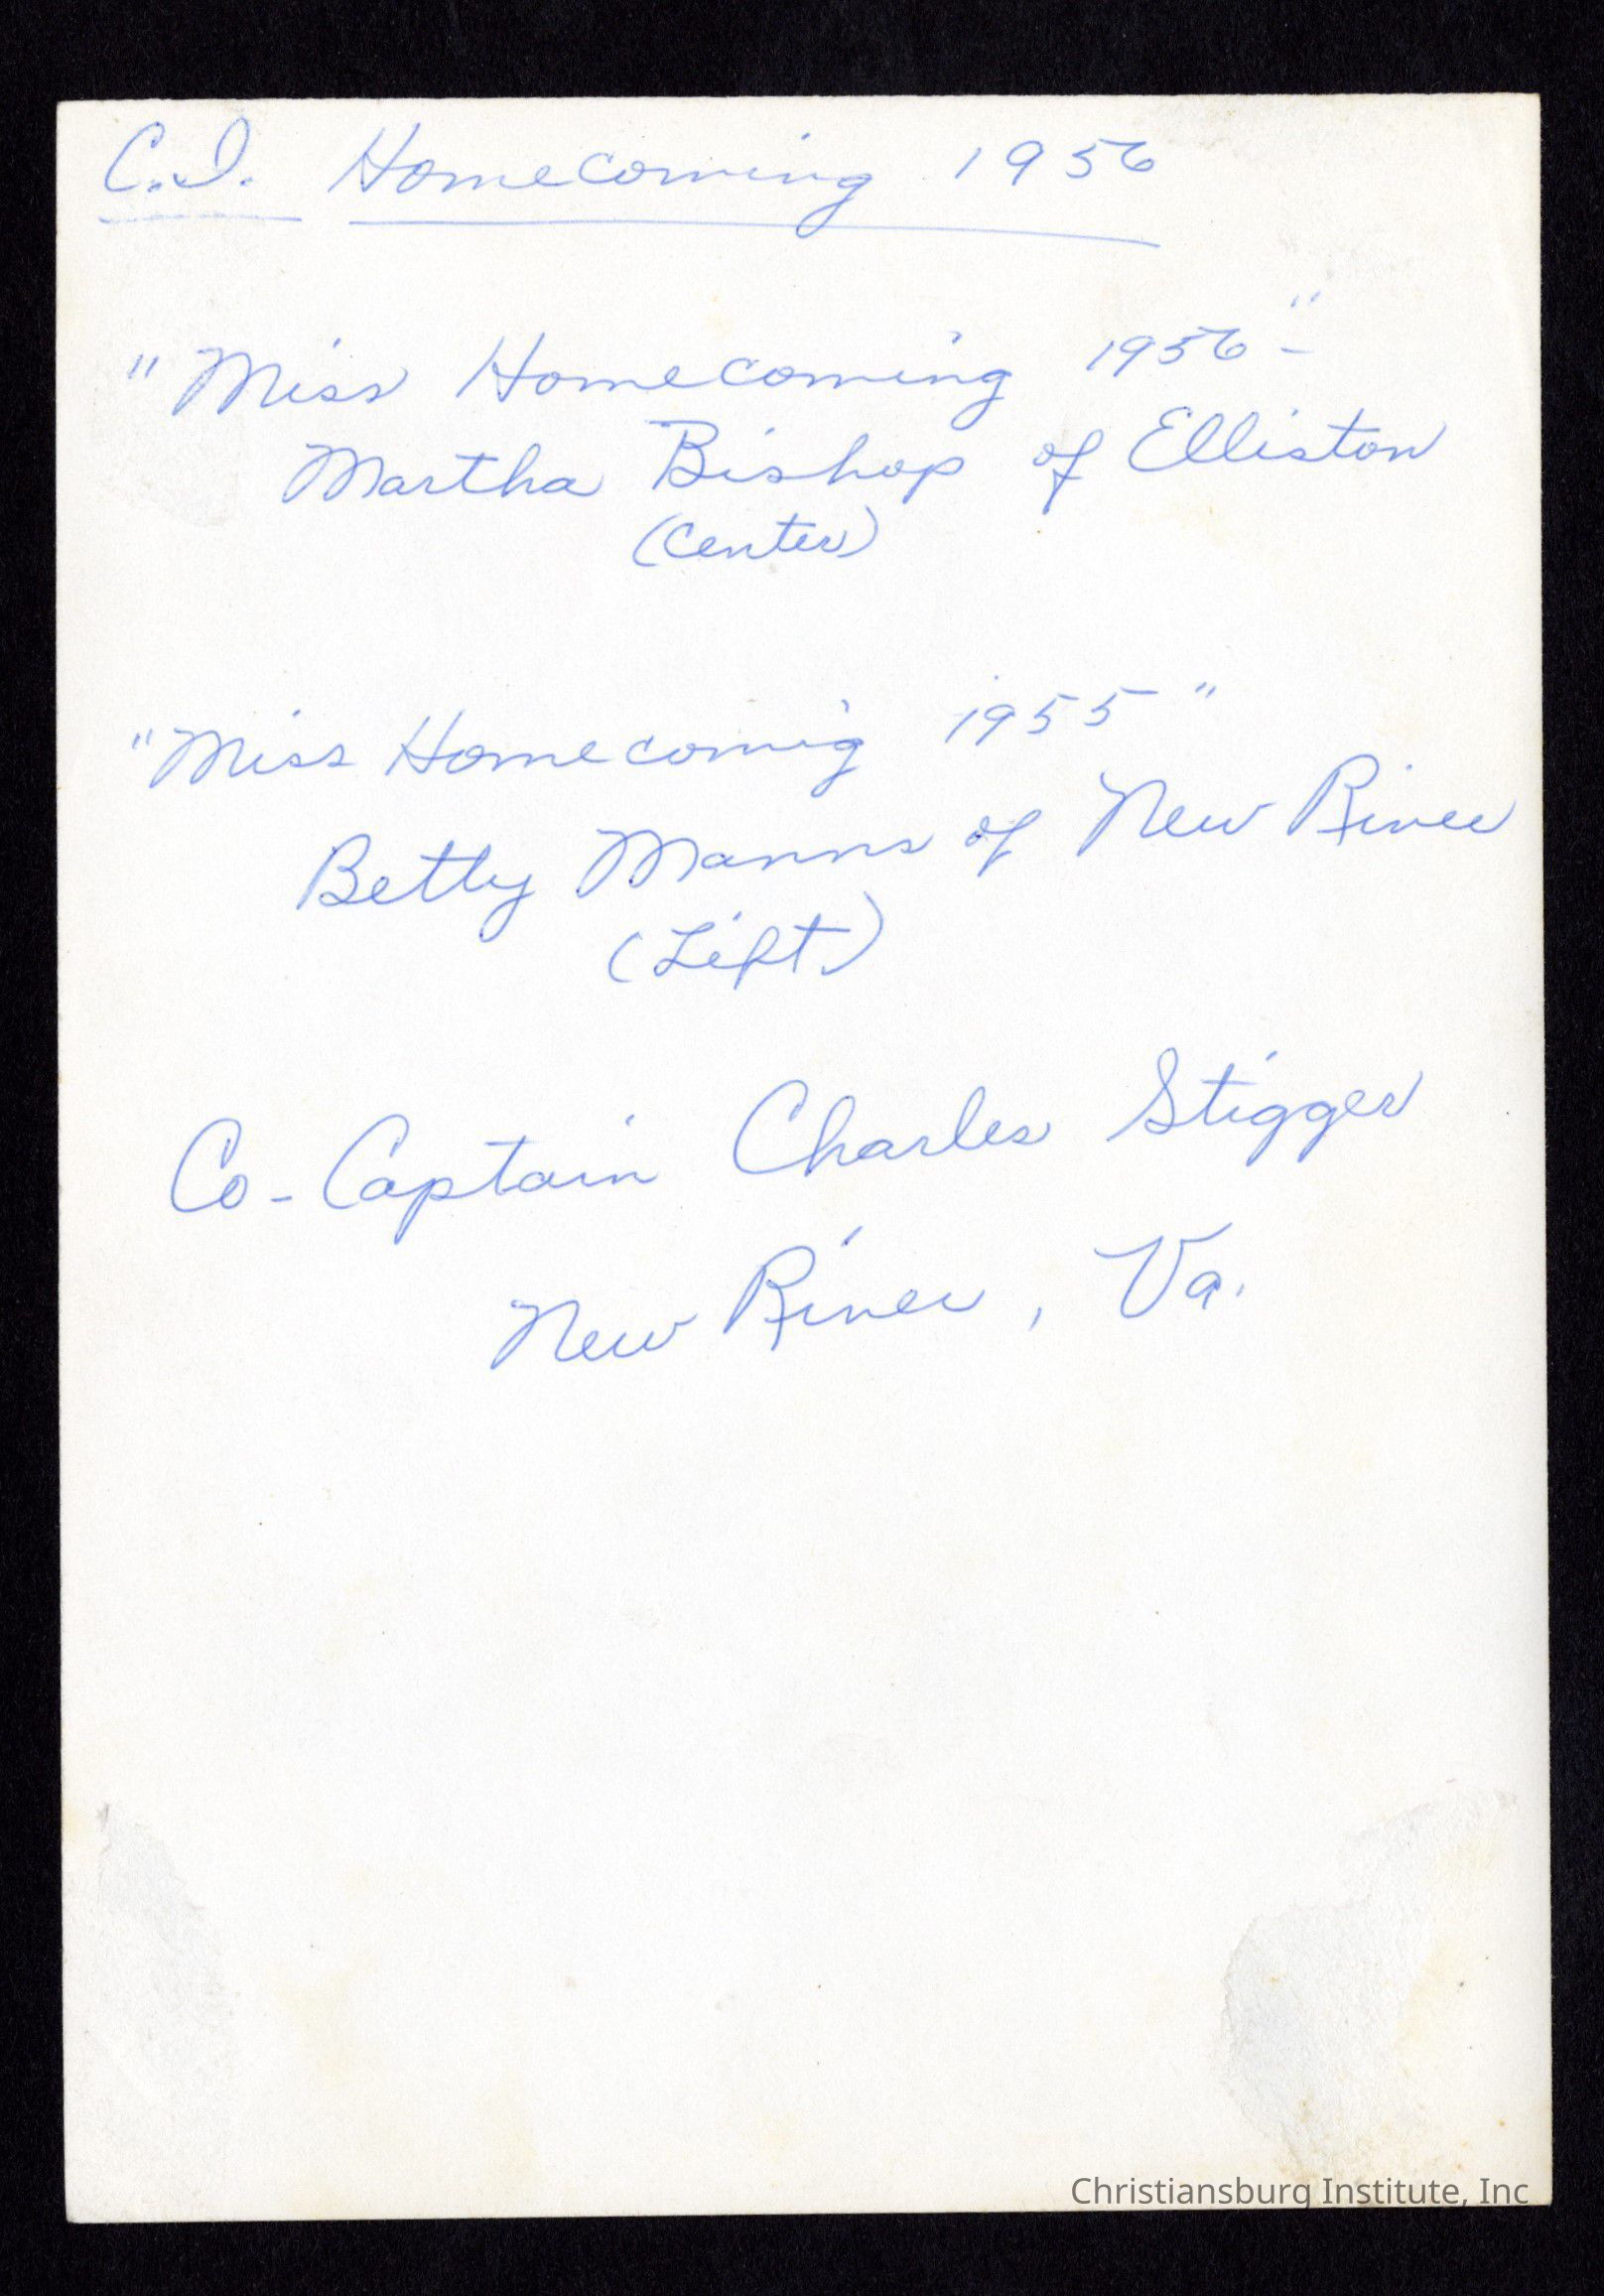 C.I. Homecoming 1956
"Miss Homecoming 1956" -
Martha Bishop of Elliston
(Center)
"Miss Homecomig 1955"
Betty Manns of New River
(Left)
Co-Captain Charles Stigger
New River, Va.
Christiansburg Institute, Inc